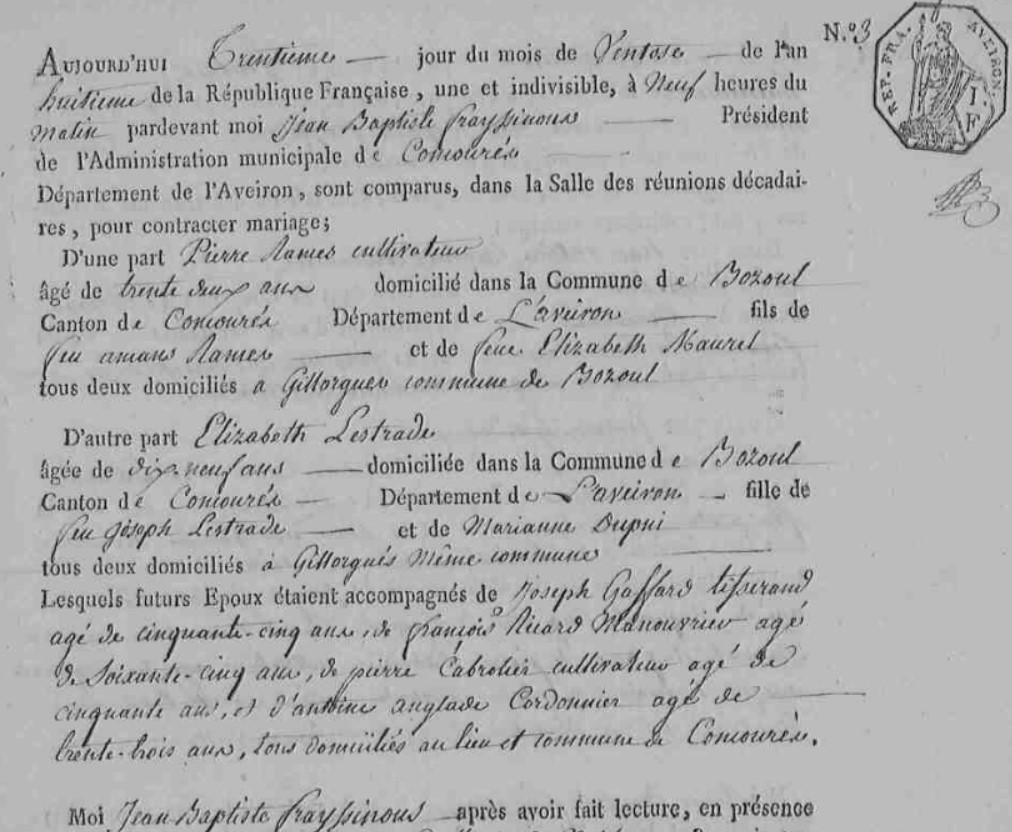 N.º 3
REP. FRA. AVEIRON.
I. F
Aujourd'hui Trentieme jour du mois de Ventose de l'an
huitieme de la République Française, une et indivisible, à Neuf heures du
matin pardevant moi Jean Baptiste frayssinous Président
de l'Administration municipale de Concourés
Département de l'Aveiron, sont comparus, dans la Salle des réunions décadai-
res, pour contracter mariage;
D'une part Pierre Rames cultivateur
âgé de trente deux ans domicilié dans la Commune de Bozoul
Canton de Concourés Département de L'aveiron fils de
feu amans Rames et de feue Elizabeth Maurel
tous deux domiciliés a Gillorgues commune de Bozoul
D'autre part Elizabeth Lestrade
âgée de dix neuf ans domiciliée dans la Commune de Bozoul
Canton de Concourés Département de L'aveiron fille de
feu Joseph Lestrade et de Marianne Dupui
tous deux domiciliés à Gillorgués Même commune
Lesquels futurs Epoux étaient accompagnés de Joseph Gaffard tisserand
agé de cinquante-cinq ans, de françois Ricard Manouvrier agé
de Soixante-cinq ans, de pierre Cabrolier cultivateur agé de
cinquante ans, et d'antoine anglade Cordonnier agé de
trente-trois ans, tous domiciliés au lieu et commune de Concourés.
Moi Jean Baptiste frayssinous après avoir fait lecture, en présence